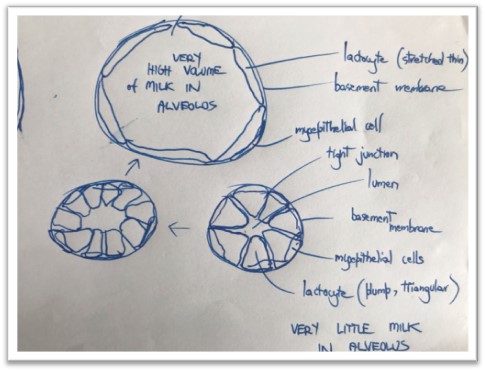 VERY
HIGH VOLUME
of MILK IN
ALVEOLUS
lactocyte (stretched thin)
basement membrane
myoepithelial cell
tight junction
lumen
basement
membrane
myoepithelial cells
lactocyte (plump, triangular)
VERY LITTLE MILK
IN ALVEOLUS